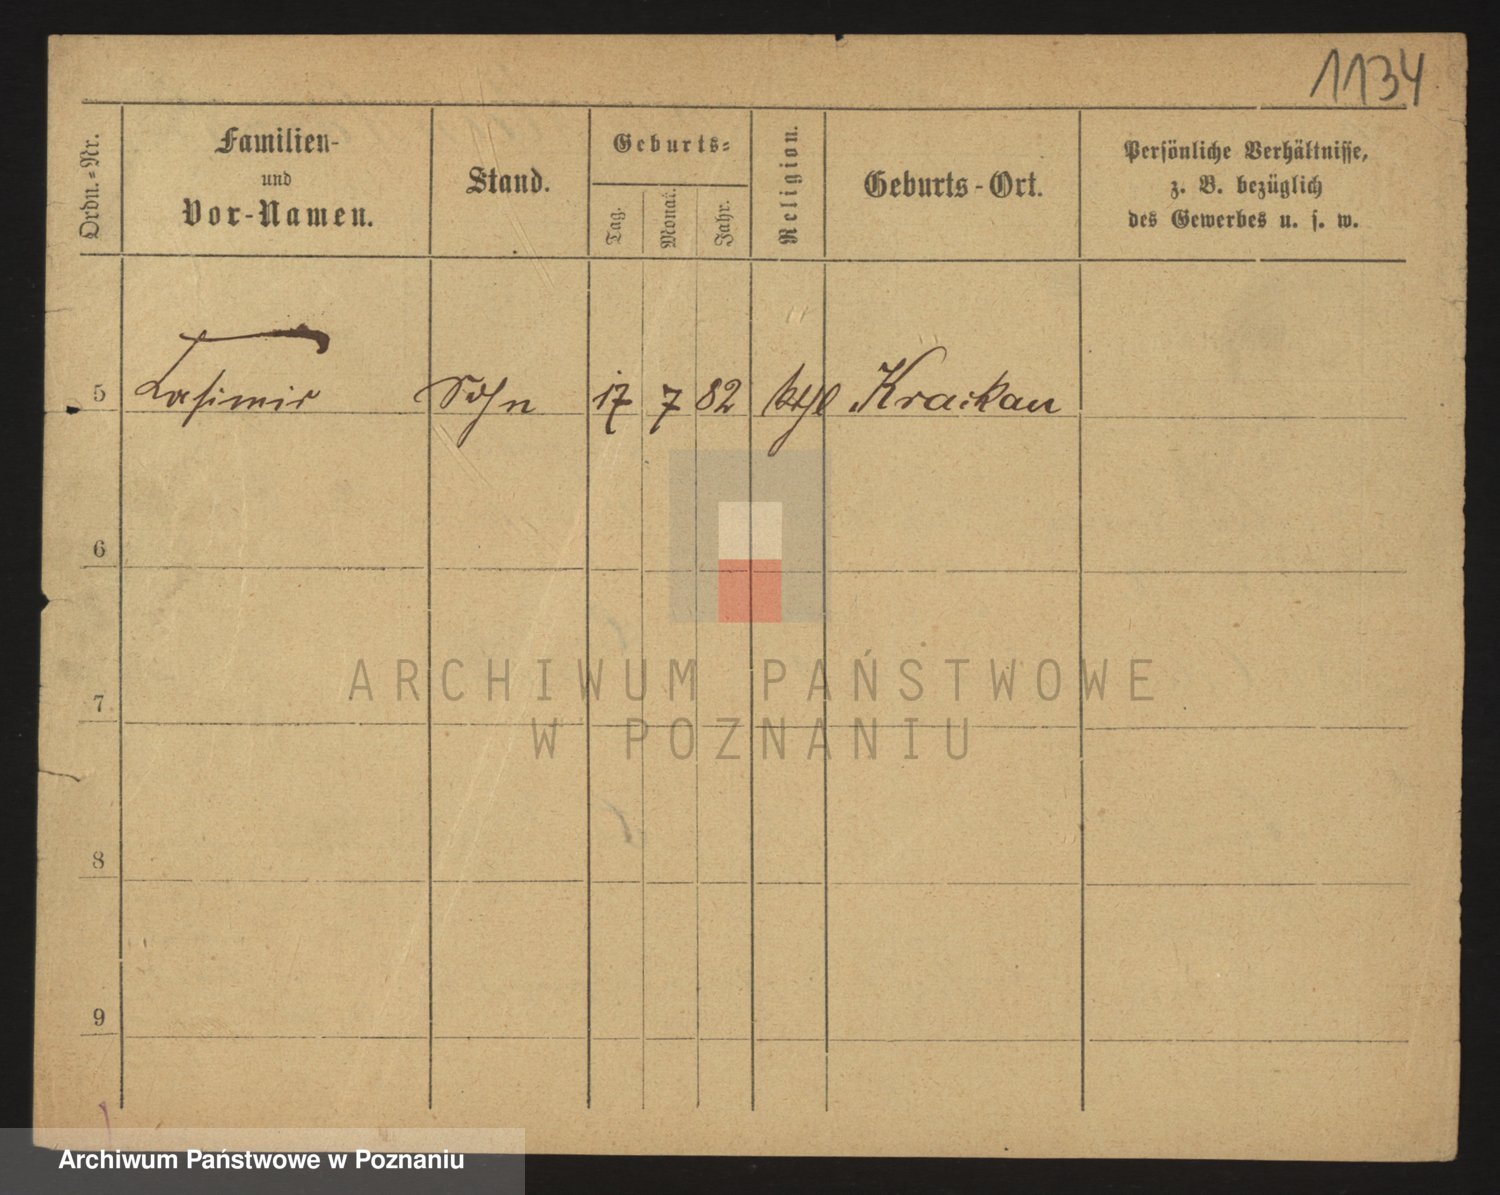 1134
Ordn.=Nr.
Familien-
und
Vor-Namen.
Stand.
Geburts=
Tag.
Monat.
Jahr.
Religion.
Geburts-Ort.
Persönliche Verhältnisse,
z. B. bezüglich
des Gewerbes u. s. w.
5 Casimir Sohn 17 7 82 kthl Krackau
6
7
8
9
ARCHIWUM PAŃSTWOWE
W POZNANIU
Archiwum Państwowe w Poznaniu